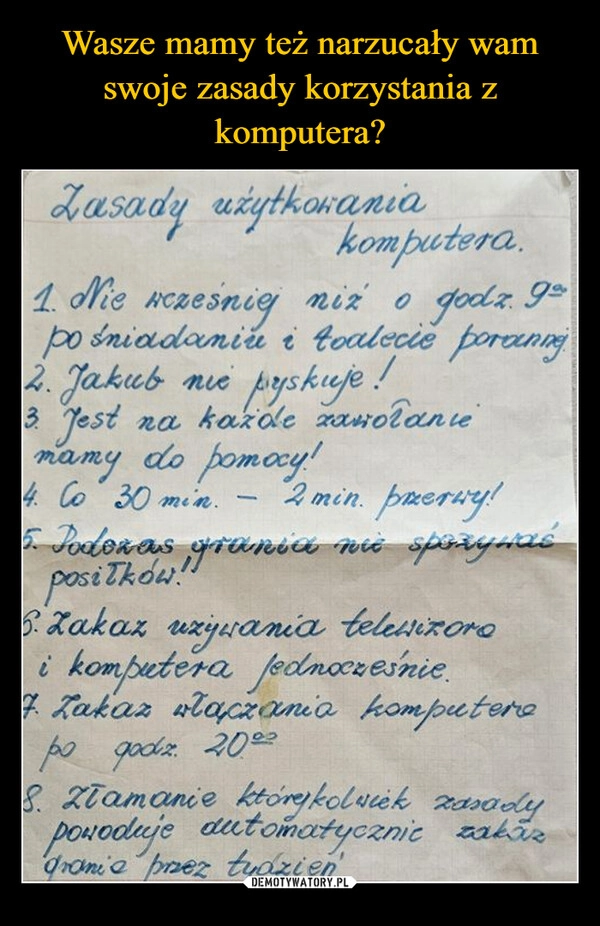 Wasze mamy też narzucały wam
swoje zasady korzystania z
komputera?
Zasady użytkowania
komputera.
1. Nie wcześniej niż o godz. 9⁰⁰
po śniadaniu i toalecie porannej.
2. Jakub nie pyskuje!
3. Jest na każde zawołanie
mamy do pomocy!
4. Co 30 min. – 2 min. przerwy!
5. Podczas grania nie spożywać
posiłków!!
6. Zakaz używania telewizora
i komputera jednocześnie.
7. Zakaz włączania komputera
po godz. 20⁰⁰
8. Złamanie którejkolwiek zasady
powoduje automatycznie zakaz
grania przez tydzień
DEMOTYWATORY.PL